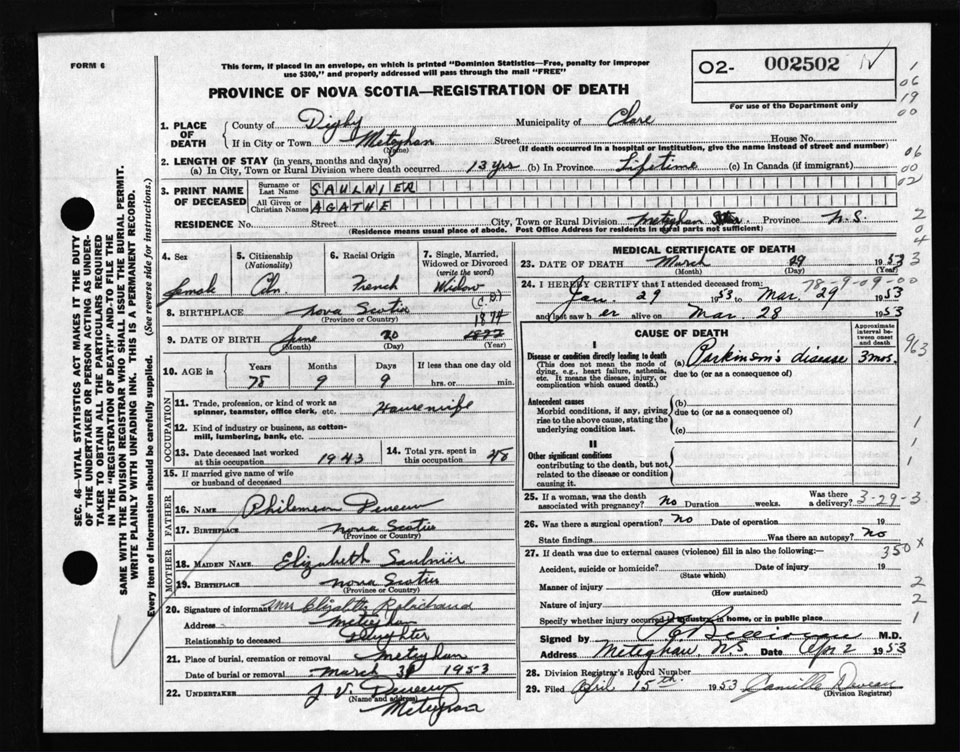 FORM 6
This form, if placed in an envelope, on which is printed "Dominion Statistics—Free, penalty for improper
use $300," and properly addressed will pass through the mail "FREE"
O2- 002502 N
For use of the Department only
PROVINCE OF NOVA SCOTIA—REGISTRATION OF DEATH
1. PLACE OF DEATH
County of Digby Municipality of Clare
If in City or Town Meteghan Street House No.
(Name) (If death occurred in a hospital or institution, give the name instead of street and number)
2. LENGTH OF STAY (in years, months and days)
(a) In City, Town or Rural Division where death occurred 13 yrs (b) In Province Lifetime (c) In Canada (if immigrant)
3. PRINT NAME OF DECEASED
Surname or Last Name SAULNIER
All Given or Christian Names AGATHE
RESIDENCE No. Street City, Town or Rural Division Meteghan Province N.S.
(Residence means usual place of abode. Post Office Address for residents in rural parts not sufficient)
4. Sex female
5. Citizenship (Nationality) Cdn.
6. Racial Origin French
7. Single, Married, Widowed or Divorced (write the word) Widow
8. BIRTHPLACE Nova Scotia
(Province or Country)
9. DATE OF BIRTH June 20 1874
(Month) (Day) (Year)
10. AGE in Years Months Days If less than one day old
78 9 9 hrs. or min.
OCCUPATION
11. Trade, profession, or kind of work as spinner, teamster, office clerk, etc. Housewife
12. Kind of industry or business, as cotton-mill, lumbering, bank, etc.
13. Date deceased last worked at this occupation 1943
14. Total yrs. spent in this occupation 48
15. If married give name of wife or husband of deceased
FATHER
16. NAME Philemeon
17. BIRTHPLACE Nova Scotia
(Province or Country)
MOTHER
18. MAIDEN NAME Elizabeth Saulnier
19. BIRTHPLACE Nova Scotia
(Province or Country)
20. Signature of informant Mrs Elizabeth Robichaud
Address Meteghan
Relationship to deceased Daughter
21. Place of burial, cremation or removal Meteghan
Date of burial or removal March 31 1953
22. UNDERTAKER J. V.
(Name and address)
Meteghan
MEDICAL CERTIFICATE OF DEATH
23. DATE OF DEATH March 29 1953
(Month) (Day) (Year)
78-9-09-00
24. I HEREBY CERTIFY that I attended deceased from:
Jan. 29 1953 to Mar. 29 1953
and last saw h er alive on Mar. 28 1953
CAUSE OF DEATH
Approximate interval between onset and death
I
Disease or condition directly leading to death
(This does not mean the mode of dying, e.g., heart failure, asthenia, etc. It means the disease, injury, or complication which caused death.)
(a) Parkinson's disease 3 mos.
due to (or as a consequence of)
Antecedent causes
Morbid conditions, if any, giving rise to the above cause, stating the underlying condition last.
(b)
due to (or as a consequence of)
(c)
II
Other significant conditions
contributing to the death, but not related to the disease or condition causing it.
25. If a woman, was the death associated with pregnancy? no Duration weeks. Was there a delivery? 3-29-3
26. Was there a surgical operation? no Date of operation 19
State findings Was there an autopsy? no
27. If death was due to external causes (violence) fill in also the following:—
Accident, suicide or homicide? Date of injury 19
(State which)
Manner of injury
(How sustained)
Nature of injury
Specify whether injury occurred in industry, in home, or in public place
Signed by M.D.
Address Meteghan, N.S. Date Apr 2 1953
28. Division Registrar's Record Number
29. Filed April 15th. 1953 Camille Deveau
(Division Registrar)
SEC. 46—VITAL STATISTICS ACT MAKES IT THE DUTY
OF THE UNDERTAKER OR PERSON ACTING AS UNDER-
TAKER TO OBTAIN ALL THE PARTICULARS REQUIRED
IN THE "REGISTRATION OF DEATH" AND TO FILE THE
SAME WITH THE DIVISION REGISTRAR WHO SHALL ISSUE THE BURIAL PERMIT.
WRITE PLAINLY WITH UNFADING INK. THIS IS A PERMANENT RECORD.
Every item of information should be carefully supplied. (See reverse side for instructions.)
1
06
19
00
06
00
02
2
04
3
963
1
1
1
350 x
2
2
1